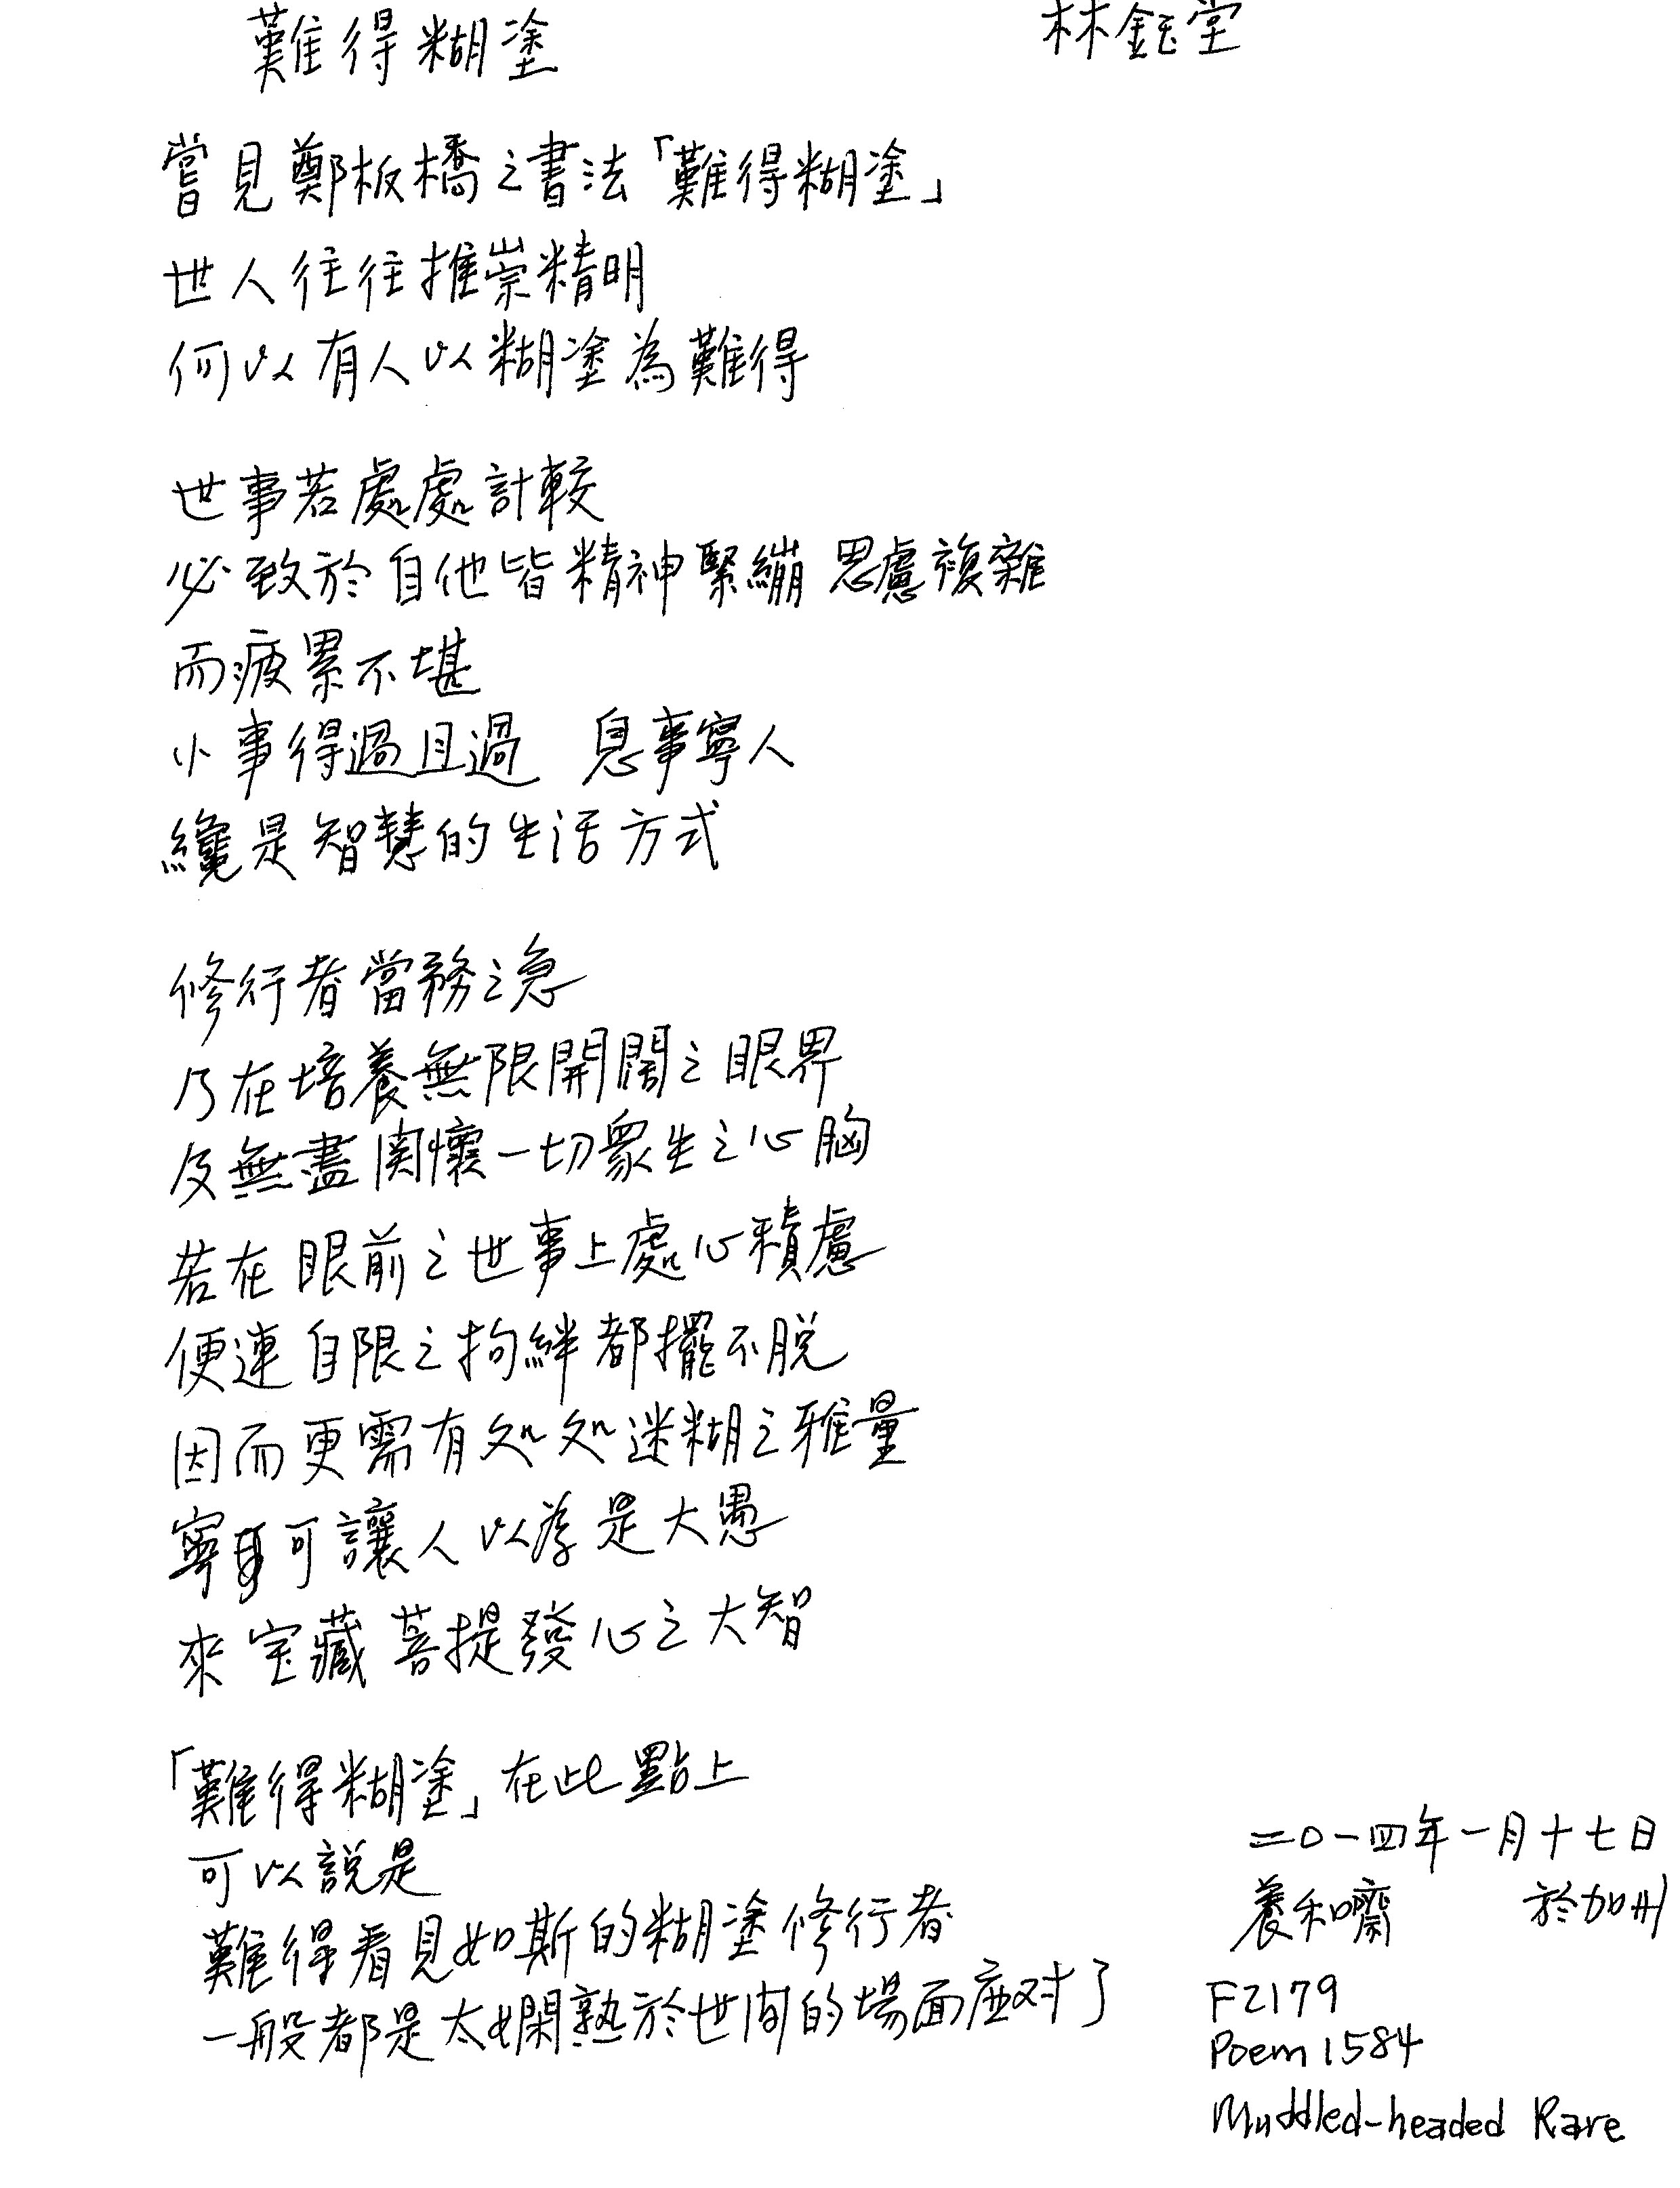 難得糊塗 林鈺堂
嘗見鄭板橋之書法「難得糊塗」
世人往往推崇精明
何以有人以糊塗為難得
世事若處處計較
必致於自他皆精神緊繃 思慮複雜
而疲累不堪
小事得過且過 息事寧人
纔是智慧的生活方式
修行者當務之急
乃在培養無限開闊之眼界
及無盡関懷一切眾生之心胸
若在眼前之世事上處心積慮
便連自限之拘絆都擺不脫
因而更需有处处迷糊之雅量
寧可讓人以為是大愚
來宝藏菩提發心之大智
「難得糊塗」在此點上
可以說是
難得看見如斯的糊塗修行者
一般都是太嫻熟於世间的場面应对了
二〇一四年一月十七日
養和齋 於加州
F2179
Poem 1584
Muddled-headed Rare